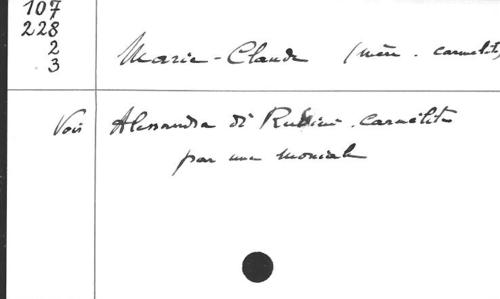 107
228
2
3
Marie-Claude (mère. carmélite)
Voir Alessandra di Rudini. carmélite
par une moniale